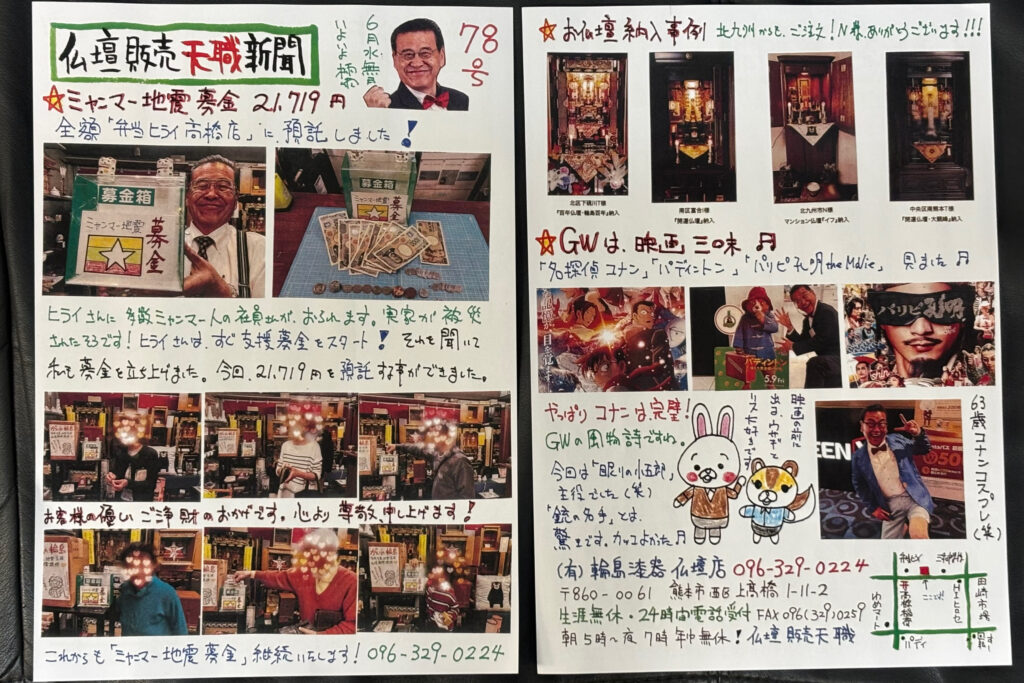 仏壇販売天職新聞
6月水無月
78号
ミャンマー地震募金 21,719円
全額「弁当ヒライ高橋店」に預託しました!
募金箱
ミャンマー地震
募金
募金箱
ミャンマー地震
募金
ヒライさんに多数ミャンマー人の社員さんが、おられます。実家が被災
されたそうです!ヒライさんは、すぐ支援募金をスタート!それを聞いて
私も募金を立ち上げました。今回、21,719円を預託する事ができました。
お客様の優しいご浄財のおかげです。心より尊敬申し上げます!
これからも「ミャンマー地震募金」継続いたします!096-329-0224
お仏壇納入事例 北九州からも、ご注文!N様、ありがとうございます!!!
北区下硯川T様
『百年仏壇・輪島百年』納入
南区富合I様
『開運仏壇』納入
北九州市N様
マンション仏壇『イフ』納入
中央区南熊本T様
『開運仏壇・大観峰』納入
GWは、映画三昧♬
「名探偵コナン」「パディントン」「パリピ孔明the Movie」見ました♬
パディントン
5.9 Fri
パリピ孔明
やっぱりコナンは完璧!
GWの風物詩ですわ。
今回は「眠りの小五郎」
主役でした(笑)
「銃の名手」とは、
驚きです。カッコよかった♬
映画の前に
出る、ウサギと
リス大好きです
63歳コナンコスプレ(笑)
(有)輪島漆器仏壇店 096-329-0224
〒860-0061 熊本市西区上高橋1-11-2
生涯無休・24時間電話受付 FAX 096(329)0259
朝5時〜夜7時年中無休!仏壇販売天職
ここ!
田崎市場